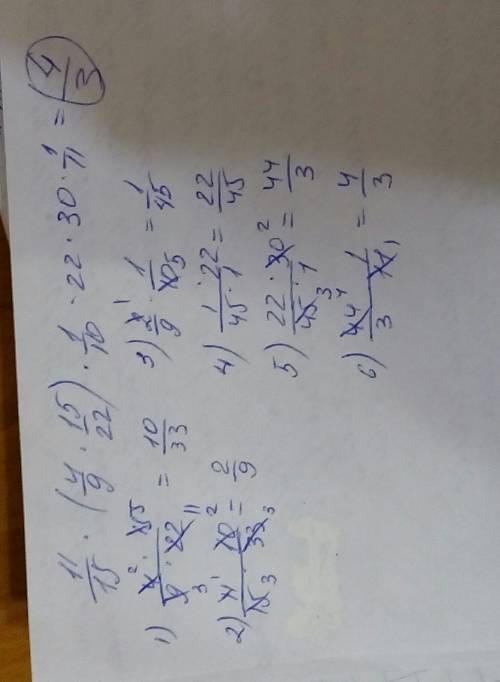 11/15 · (4/9 · 15/22) · 1/10 · 22 · 30 · 1/11 = 4/3
1) 4² · 15⁵ / 9₃ · 22₁₁ = 10/33
2) 11¹ · 10² / 15₃ · 33₃ = 2/9
3) 2¹/9 · 1/10₅ = 1/45
4) 1 · 22 / 45 · 1 = 22/45
5) 22 · 30² / 45₃ · 1 = 44/3
6) 44⁴/3 · 1/11₁ = 4/3